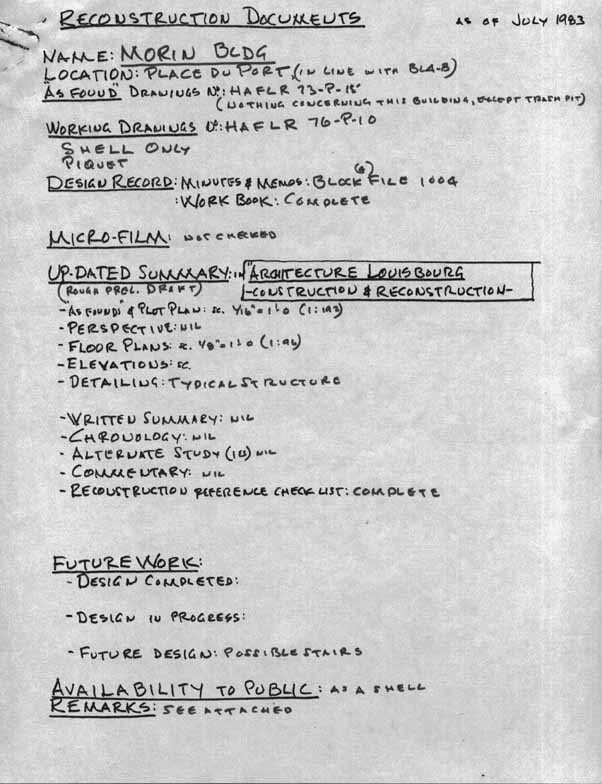 RECONSTRUCTION DOCUMENTS AS OF JULY 1983
NAME: MORIN BLDG
LOCATION: PLACE DU PORT, (IN LINE WITH BL4-B)
"AS FOUND" DRAWINGS No: HAFLR 73-P-18
(NOTHING CONCERNING THIS BUILDING, EXCEPT TRASH PIT)
WORKING DRAWINGS No: HAFLR 76-P-10
SHELL ONLY
PIQUET
DESIGN RECORD: MINUTES & MEMOS: BLOCK FILE 1004
: WORK BOOK: COMPLETE
MICRO-FILM: NOT CHECKED
UP-DATED SUMMARY: IN "ARCHITECTURE LOUISBOURG
(ROUGH PREL. DRAFT) -CONSTRUCTION & RECONSTRUCTION-
- "AS FOUND" & PLOT PLAN: SC. 1/16" = 1'0 (1:192)
- PERSPECTIVE: NIL
- FLOOR PLANS: SC. 1/8" = 1'0 (1:96)
- ELEVATIONS: SC.
- DETAILING: TYPICAL STRUCTURE
- WRITTEN SUMMARY: NIL
- CHRONOLOGY: NIL
- ALTERNATE STUDY NIL
- COMMENTARY: NIL
- RECONSTRUCTION REFERENCE CHECK LIST: COMPLETE
FUTURE WORK:
- DESIGN COMPLETED:
- DESIGN IN PROGRESS:
- FUTURE DESIGN: POSSIBLE STAIRS
AVAILABILITY TO PUBLIC: AS A SHELL
REMARKS: SEE ATTACHED